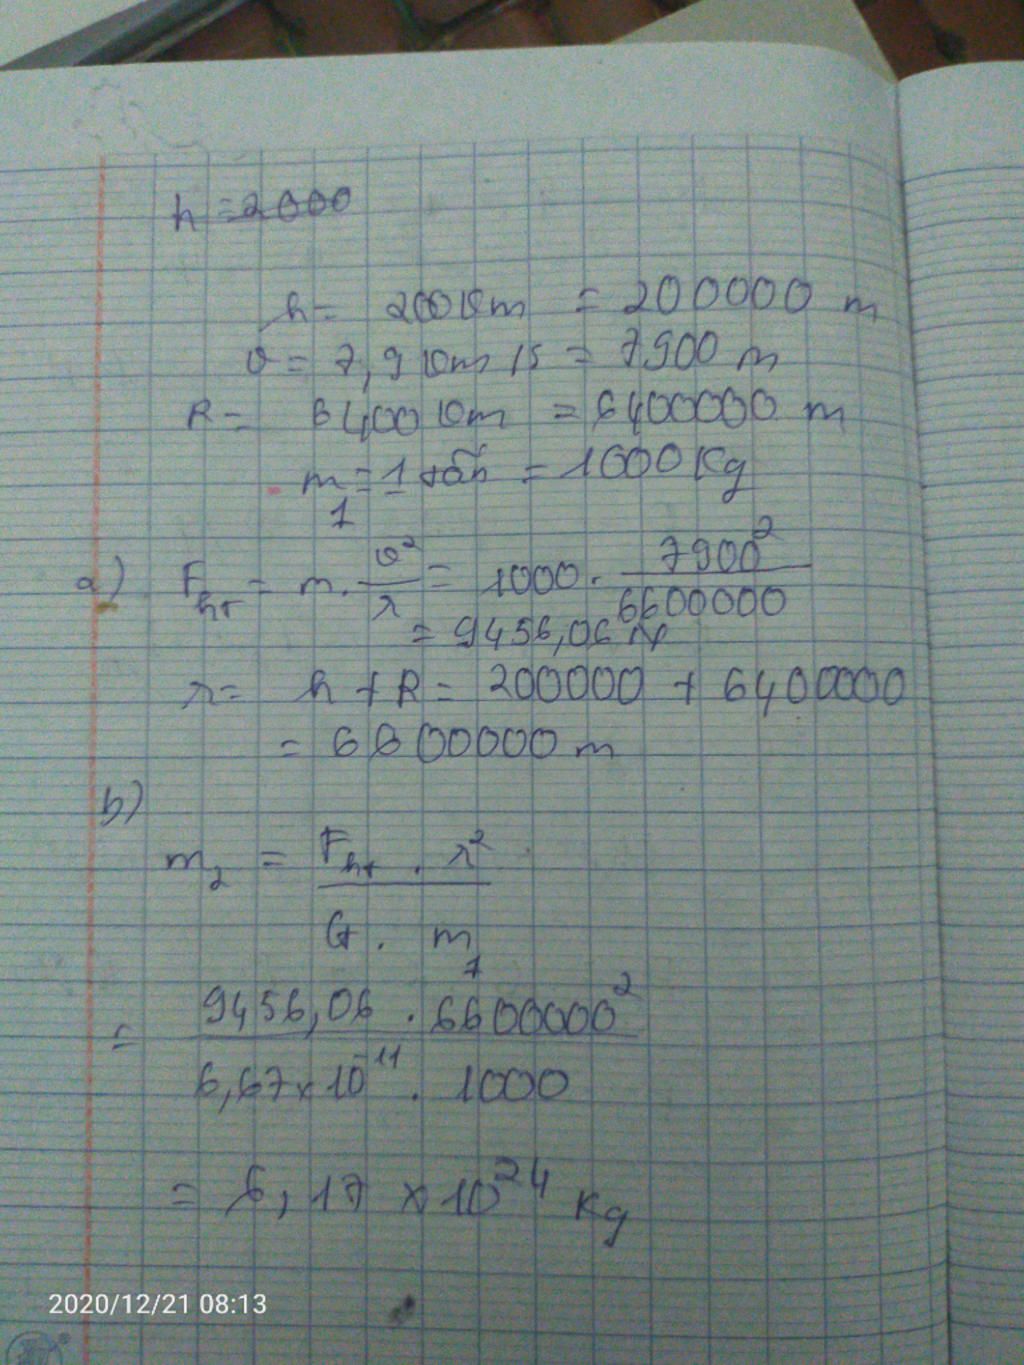 h = 2000
h = 200 km = 200000 m
v = 7,9 km/s = 7900 m
R = 6400 km = 6400000 m
m₁ = 1 tấn = 1000 Kg
a) Fht = m. v²/r = 1000. 7900²/6600000
= 9456,06 N
r = h + R = 200000 + 6400000
= 6600000 m
b)
m₂ = Fht . r²
G . m₁
= 9456,06 . 6600000²
6,67 x 10⁻¹¹ . 1000
= 6,17 x 10²⁴ Kg
2020/12/21 08:13